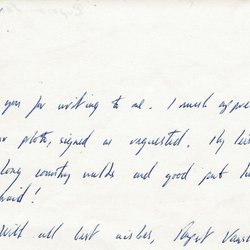 you for writing to me. I much appre
photo, signed as requested. My
long country walks and good pub
With all best wishes,